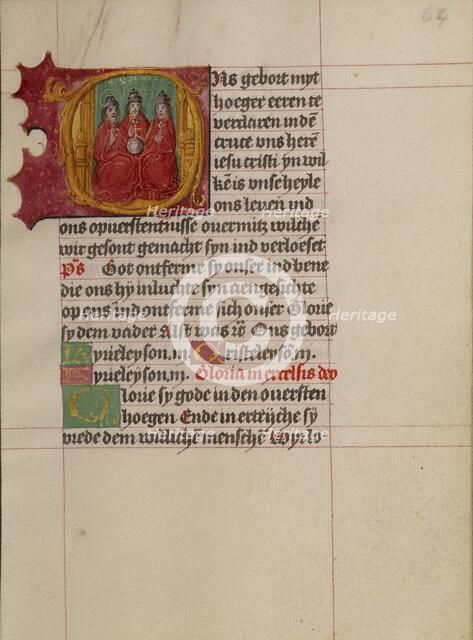 64
Ons gebort myt
hoeger eeren te
verclaren in dē
cruce vns herē
iesu cristi yn wil
kē is vnse heyle
ons leuen ind
ons opuerstentnisse ouermitz wilche
wir gesont gemacht syn ind verloeset
Ps Got ontferme sy onser ind bene
die ons hy inluchte syn aengesichte
op ons ind ontferme sich onser Glorie
sy dem vader Alst was rē Ons gebort
Kyrieleyson. m. Cristeleysō. m.
Kyrieleyson. m. Gloria in excelsis deo
Glorie sy gode in den ouersten
hoegen Ende in ertrijche sy
vrede dem willichē menschē Wyr lo
Heritage
Heritage
Heritage
Heritage
Heritage
Heritage